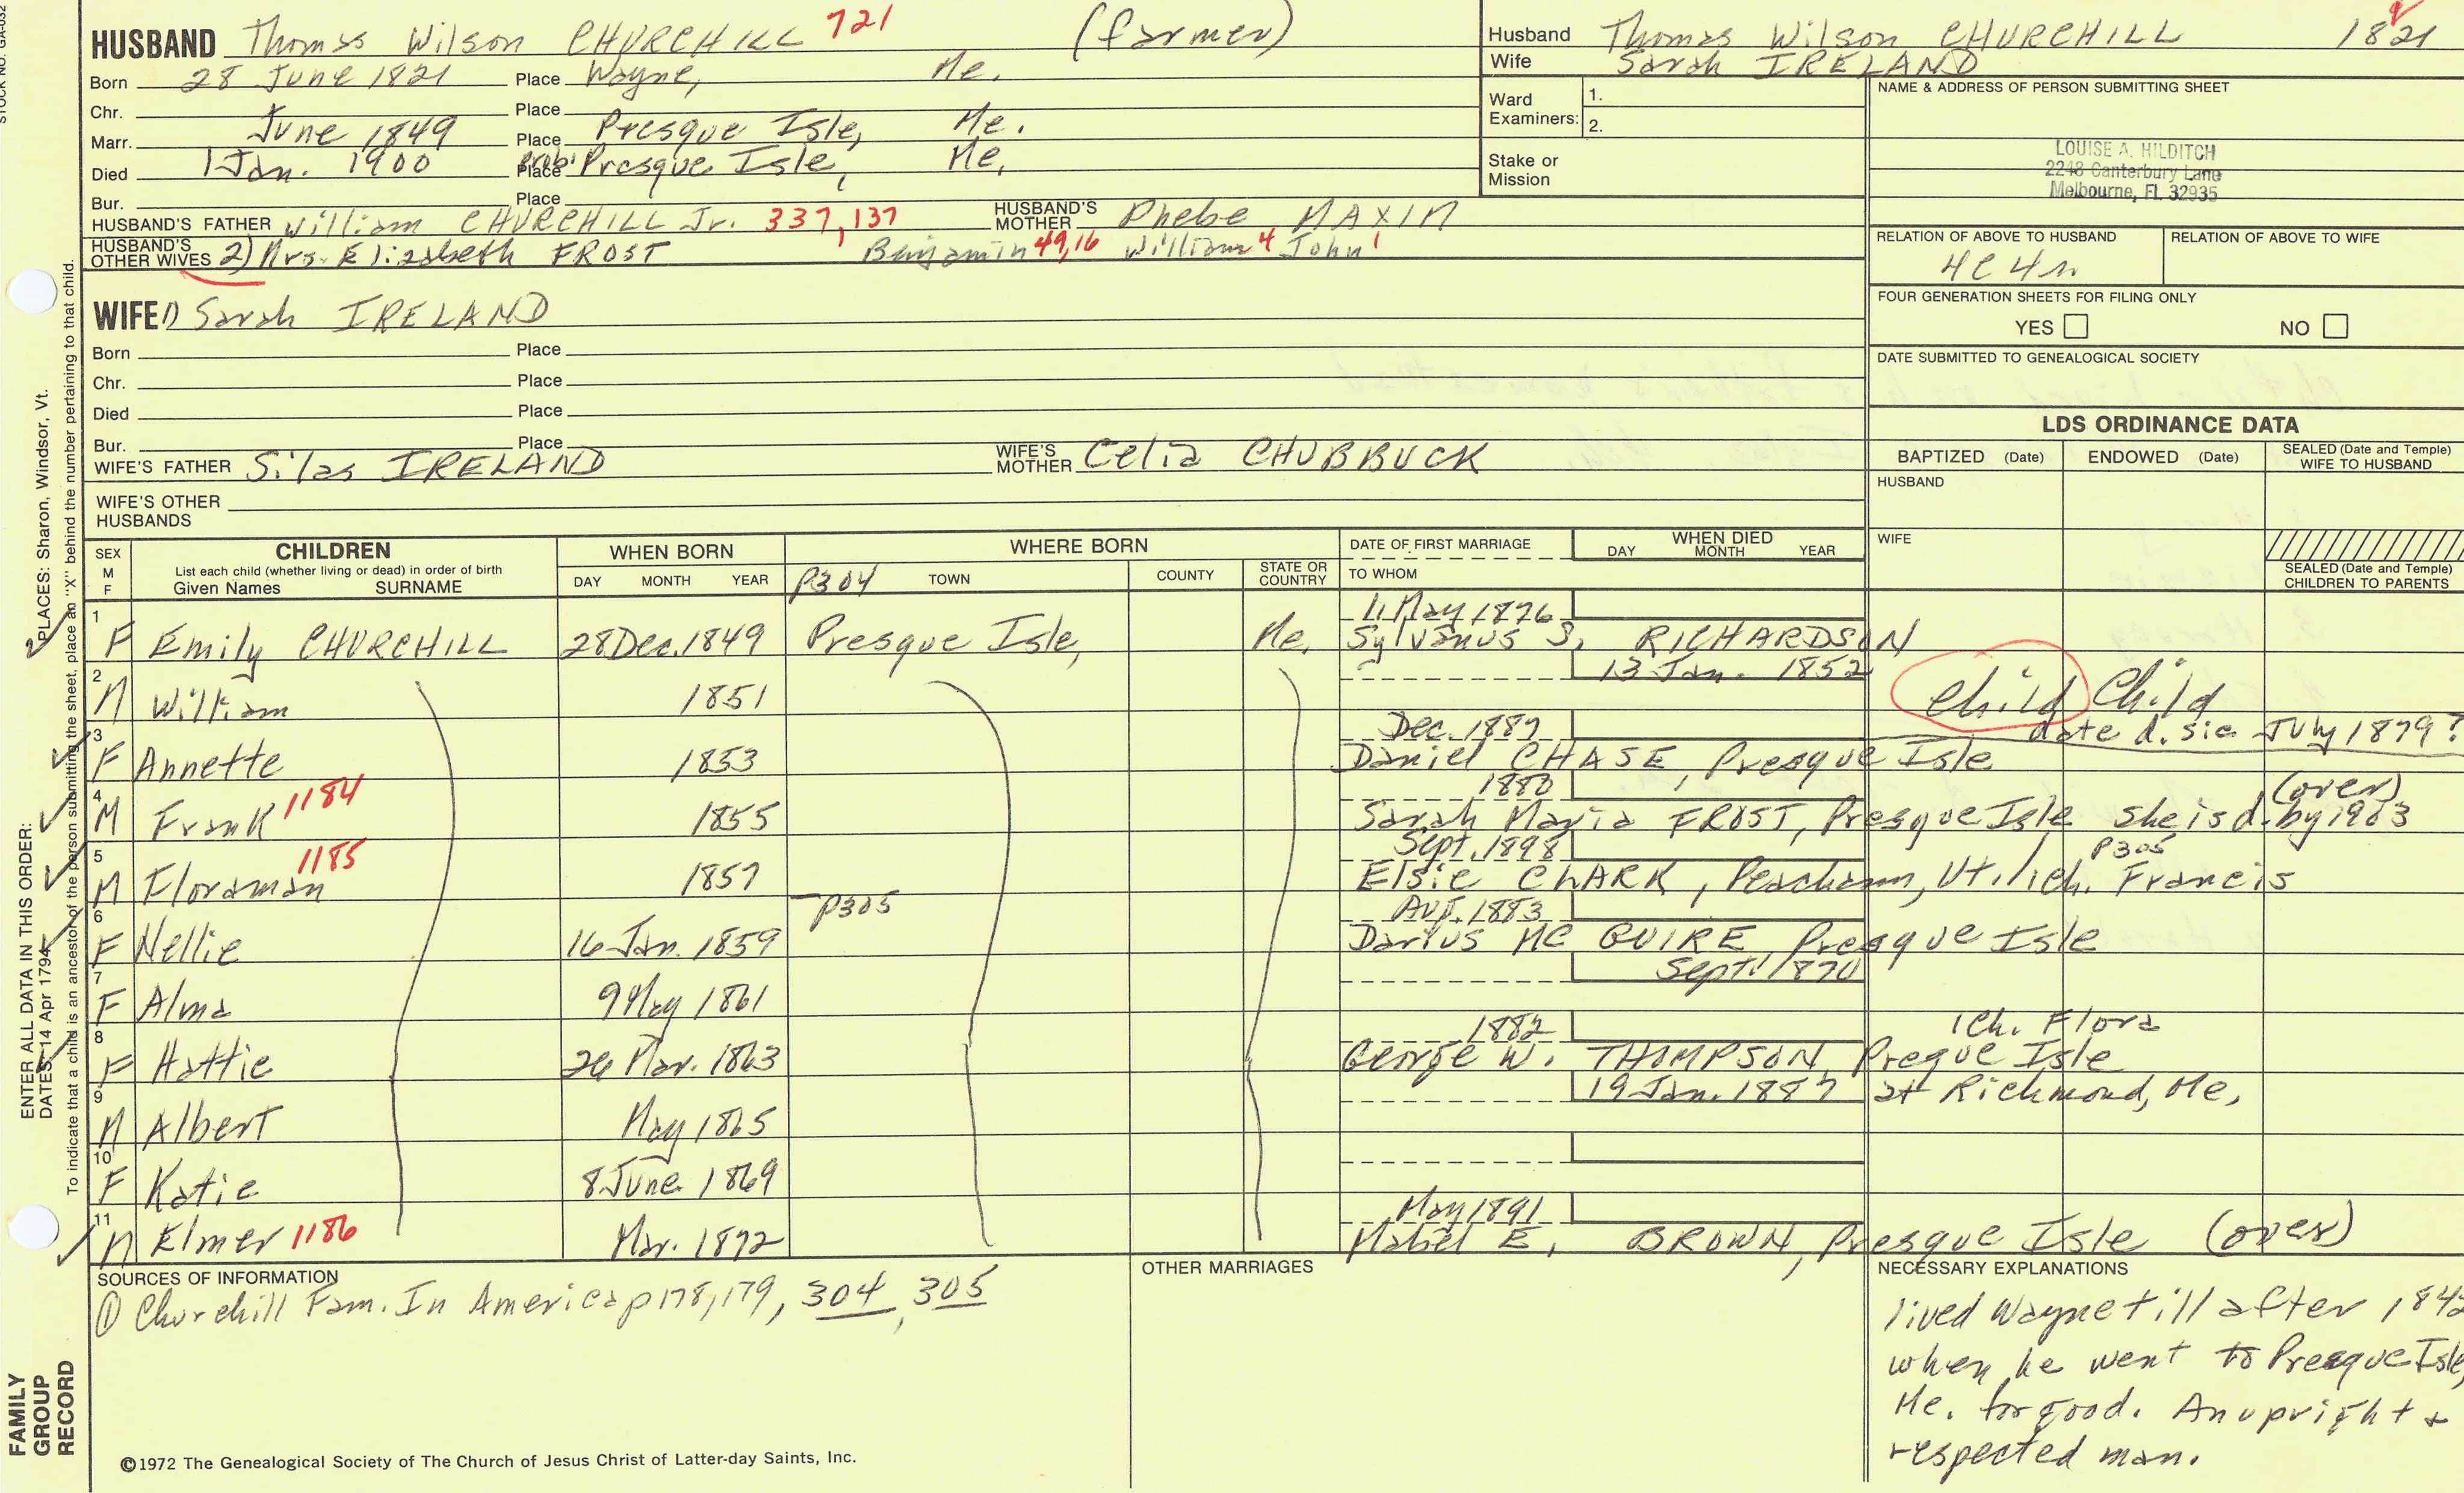 STOCK NO. GA-032
HUSBAND Thomas Wilson CHURCHILL 721 (farmer)
Born 28 June 1821 Place Wayne, Me.
Chr. Place
Marr. June 1849 Place Presque Isle, Me.
Died 1 Jan. 1900 prob. Place Presque Isle, Me.
Bur. Place
HUSBAND'S FATHER William CHURCHILL Jr. 337, 137 HUSBAND'S MOTHER Phebe MAXIM
HUSBAND'S OTHER WIVES 2) Mrs. Elizabeth FROST Benjamin 49,16 William 4 John 1
Husband Thomas Wilson CHURCHILL 1821
Wife Sarah IRELAND
Ward Examiners: 1.
2.
Stake or Mission
NAME & ADDRESS OF PERSON SUBMITTING SHEET
LOUISE A. HILDITCH
2248 Canterbury Lane
Melbourne, FL 32935
RELATION OF ABOVE TO HUSBAND RELATION OF ABOVE TO WIFE
4C4r.
FOUR GENERATION SHEETS FOR FILING ONLY
YES NO
DATE SUBMITTED TO GENEALOGICAL SOCIETY
WIFE 1) Sarah IRELAND
Born Place
Chr. Place
Died Place
Bur. Place
WIFE'S FATHER Silas IRELAND WIFE'S MOTHER Celia CHUBBUCK
WIFE'S OTHER HUSBANDS
LDS ORDINANCE DATA
BAPTIZED (Date) ENDOWED (Date) SEALED (Date and Temple) WIFE TO HUSBAND
HUSBAND
WIFE
SEALED (Date and Temple) CHILDREN TO PARENTS
SEX M F
CHILDREN
List each child (whether living or dead) in order of birth
Given Names SURNAME
WHEN BORN
DAY MONTH YEAR
WHERE BORN
P304 TOWN COUNTY STATE OR COUNTRY
DATE OF FIRST MARRIAGE
TO WHOM
WHEN DIED
DAY MONTH YEAR
1 F Emily CHURCHILL 28 Dec. 1849 Presque Isle, Me. 11 May 1876 Sylvanus S. RICHARDSON
2 M William 1851 13 Jan. 1852 child Child
date d. sic July 1879?
3 F Annette 1853 Dec. 1887 Daniel CHASE, Presque Isle
(over)
4 M Frank 1184 1855 1880 Sarah Maria FROST, Presque Isle she is d. by 1903
5 M Floraman 1185 1857 Sept. 1898 Elsie CLARK, Peacham, Vt. 1 ch. Francis P305
P305
6 F Nellie 16 Jan. 1859 Aug. 1883 Darius MC GUIRE, Presque Isle
7 F Alma 9 May 1861 Sept. 1870
8 F Hattie 26 Mar. 1863 1882 George W. THOMPSON, Preque Isle 1 ch. Flora
9 M Albert May 1865 19 Jan. 1887 at Richmond, Me,
10 F Katie 8 June 1869
11 M Elmer 1186 Mar. 1872 May 1891 Mabel E. BROWN, Presque Isle (over)
SOURCES OF INFORMATION
① Churchill Fam. In America p178, 179, 304, 305
OTHER MARRIAGES
NECESSARY EXPLANATIONS
lived Wayne till after 184
when he went to Presque Isle,
Me. for good. An upright &
respected man.
©1972 The Genealogical Society of The Church of Jesus Christ of Latter-day Saints, Inc.
ENTER ALL DATA IN THIS ORDER:
DATES: 14 Apr 1794
PLACES: Sharon, Windsor, Vt.
To indicate that a child is an ancestor of the person submitting the sheet, place an "X" behind the number pertaining to that child.
FAMILY
GROUP
RECORD